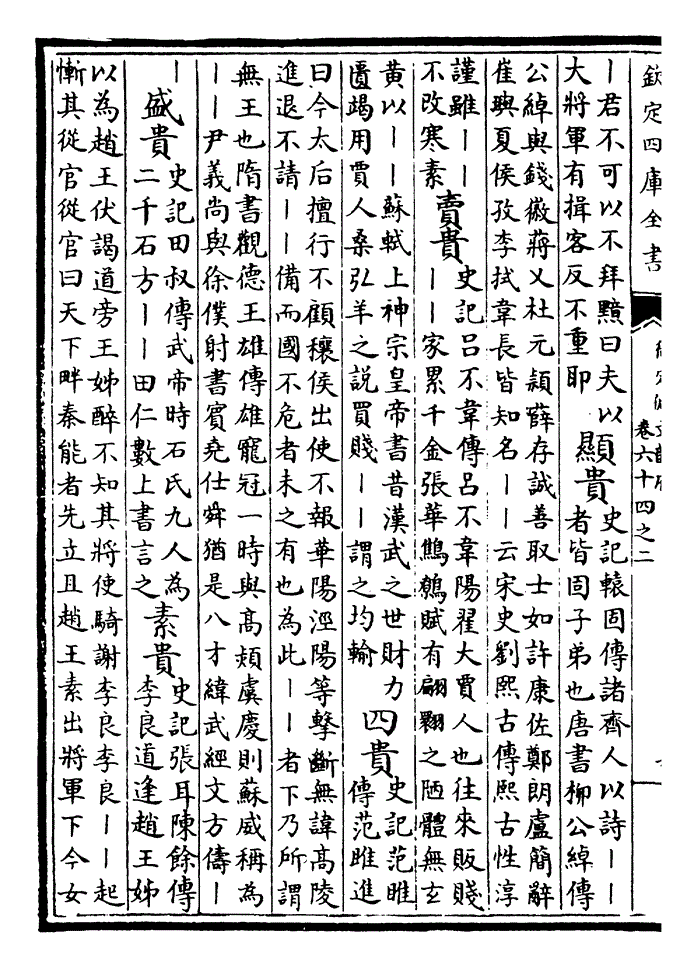 欽定四庫全書
卷六十四之二
丨君不可以不拜黯曰夫以
大將軍有揖客反不重耶
顯貴
史記轅固傳諸齊人以詩丨丨
者皆固子弟也唐書柳公綽傳
公綽與錢徽蔣乂杜元潁薛存誠善取士如許康佐鄭朗盧簡辭
崔璵夏侯孜李拭韋長皆知名丨丨云宋史劉熙古傳熙古性淳
謹雖丨丨
不改寒素
賣貴
史記呂不韋傳呂不韋陽翟大賈人也往來販賤
丨丨家累千金張華鷦鷯賦有翩翾之陋體無玄
黄以丨丨蘇軾上神宗皇帝書昔漢武之世財力
匱竭用賈人桑弘羊之説買賤丨丨謂之均輸
四貴
史記范睢
傳范睢進
曰今太后擅行不顧穰侯出使不報華陽涇陽等擊斷無諱高陵
進退不請丨丨備而國不危者未之有也為此丨丨者下乃所謂
無王也隋書觀德王雄傳雄寵冠一時與高熲虞慶則蘇威稱為
丨丨尹義尚與徐僕射書賓堯仕舜猶是八才緯武經文方儔丨
丨
盛貴
史記田叔傳武帝時石氏九人為
二千石方丨丨田仁數上書言之
素貴
史記張耳陳餘傳
李良道逢趙王姊
以為趙王伏謁道旁王姊醉不知其將使騎謝李良李良丨丨起
慚其從官從官曰天下畔秦能者先立且趙王素出將軍下今女